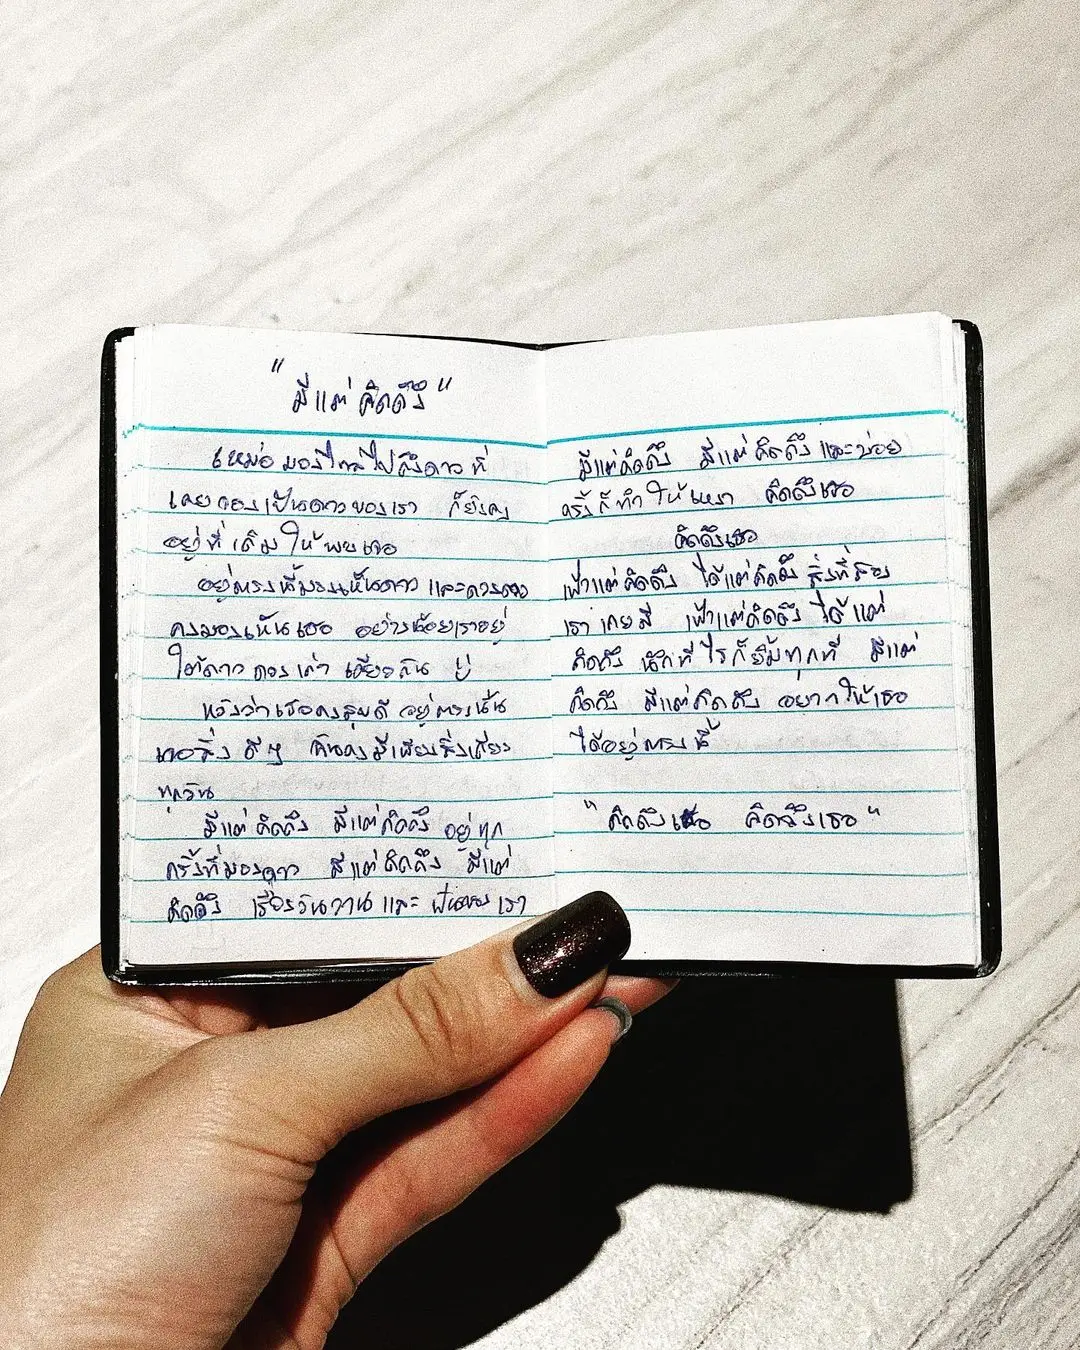 "มีแต่คิดถึง"
เหม่อมองไกลไปถึงดาวที่
เคยจองเป็นดาวของเรา ก็ยังคง
อยู่ที่เดิมให้พบเจอ
อยู่ตรงนี้มองเห็นดาว และดวงดาว
คงมองเห็นเธอ อย่างน้อยเราอยู่
ใต้ดาวดวงเก่า เดียวกัน
หวังว่าเธอคงสุขดี อยู่ตรงนั้น
เจอสิ่งดีๆ ฉันคงมีเพียงสิ่งเดียว
ทุกวัน
มีแต่คิดถึง มีแต่คิดถึง อยู่ทุก
ครั้งที่มองดาว มีแต่คิดถึง มีแต่
คิดถึง เรื่องวันวาน และ เรา
มีแต่คิดถึง มีแต่คิดถึง และบ่อย
ครั้งก็ทำให้เหงา คิดถึงเธอ
คิดถึงเธอ
เฝ้าแต่คิดถึง ได้แต่คิดถึง สิ่งที่สอง
เรา เคยมี เฝ้าแต่คิดถึง ได้แต่
คิดถึง นึกทีไรก็ยิ้มทุกที มีแต่
คิดถึง มีแต่คิดถึง อยากให้เธอ
ได้อยู่ตรงนี้
"คิดถึงเธอ คิดถึงเธอ"